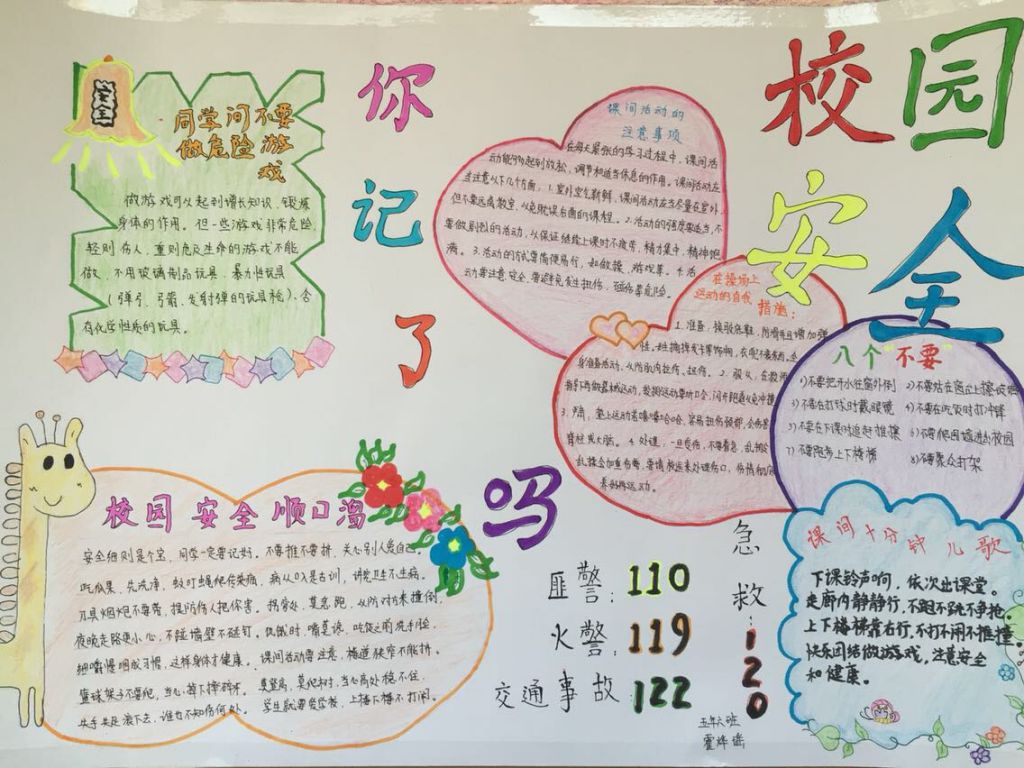 校园安全
你记了吗
安全
同学间不要
做危险游
戏
做游戏可以起到增长知识、锻炼
身体的作用。但一些游戏非常危险,
轻则伤人,重则危及生命的游戏不能
做、不用玻璃制品玩具、暴力性玩具
(弹弓、弓箭、发射弹的玩具枪)、含
有化学性质的玩具。
课间活动的
注意事项
在每天紧张的学习过程中,课间活
动能够起到放松,调节和适当休息的作用。课间活动应
当注意以下几个方面,1.室外空气新鲜,课间活动应当尽量在室外,
但不要远离教室,以免耽误后面的课程。2.活动的强度要适当,不
要做剧烈的活动,以保证继续上课时不疲劳,精力集中,精神饱
满。3.活动的方式要简便易行,如做操、游戏等。4.活
动要注意安全,要避免发生扭伤、碰伤等危险。
在操场上
运动的自我
措施:
1.准备,换软底鞋,防滑而且增加弹
2.
3.
4.处理,一旦受伤,不要着急,
八个“不要”
1)不要把开水往窗外倒
2)不要站在窗台上擦玻璃
3)不要在打球时戴眼镜
4)不要在吃饭时打冲锋
5)不要在下课时追赶推搡
6)不要爬围墙进出校园
7)不要跑步上下楼梯
8)不要聚众打架
课间十分钟儿歌
下课铃声响,依次出课堂。
走廊内静静行,不跑不跳不争抢。
上下楼梯靠右行,不打不闹不推撞。
快乐团结做游戏,注意安全
和健康。
校园安全顺口溜
安全细则是个宝,同学一定要记好。不要推不要挤,关心别人爱自己。
吃瓜果,先洗净,蚊叮蝇爬传染病,病从口入是古训,讲究卫生不生病。
刃具烟炮不要带,提防伤人把你害。拐弯处,莫急跑,以防对方来撞倒。
夜晚走路更小心,不碰墙壁不碰钉。饥饿时,嘴莫馋,吃饭之前洗手脸,
细嚼慢咽成习惯,这样身体才健康。课间活动要注意,楼道狭窄不能挤。
篮球架子不要爬,当心掉下摔碎牙。莫登高,莫爬树,当心高处稳不住,
失手失足滚下去,谁也不知伤何处。学生就要爱学校,上楼下楼不打闹。
匪警:110
火警:119
交通事故122
急救:120
五年六班